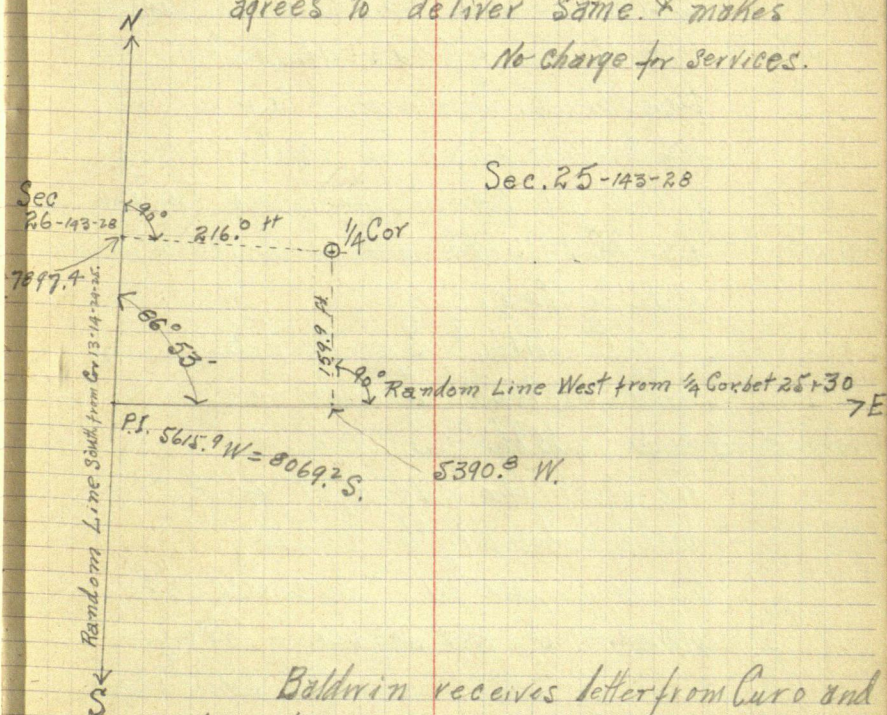 agrees to deliver same. & makes
No charge for services.
N
Sec. 25-143-28
Sec
26-143-28
90°
216.0 ft
1/4 Cor
7897.4
86° 53'
159.9 ft.
90°
Random Line West from 1/4 Cor. bet 25+30
E
P.I. 5615.9 W = 8069.2 S.
5390.8 W.
Random Line South from Cor 13-14-24-25.
S
Baldwin receives letter from Curo and